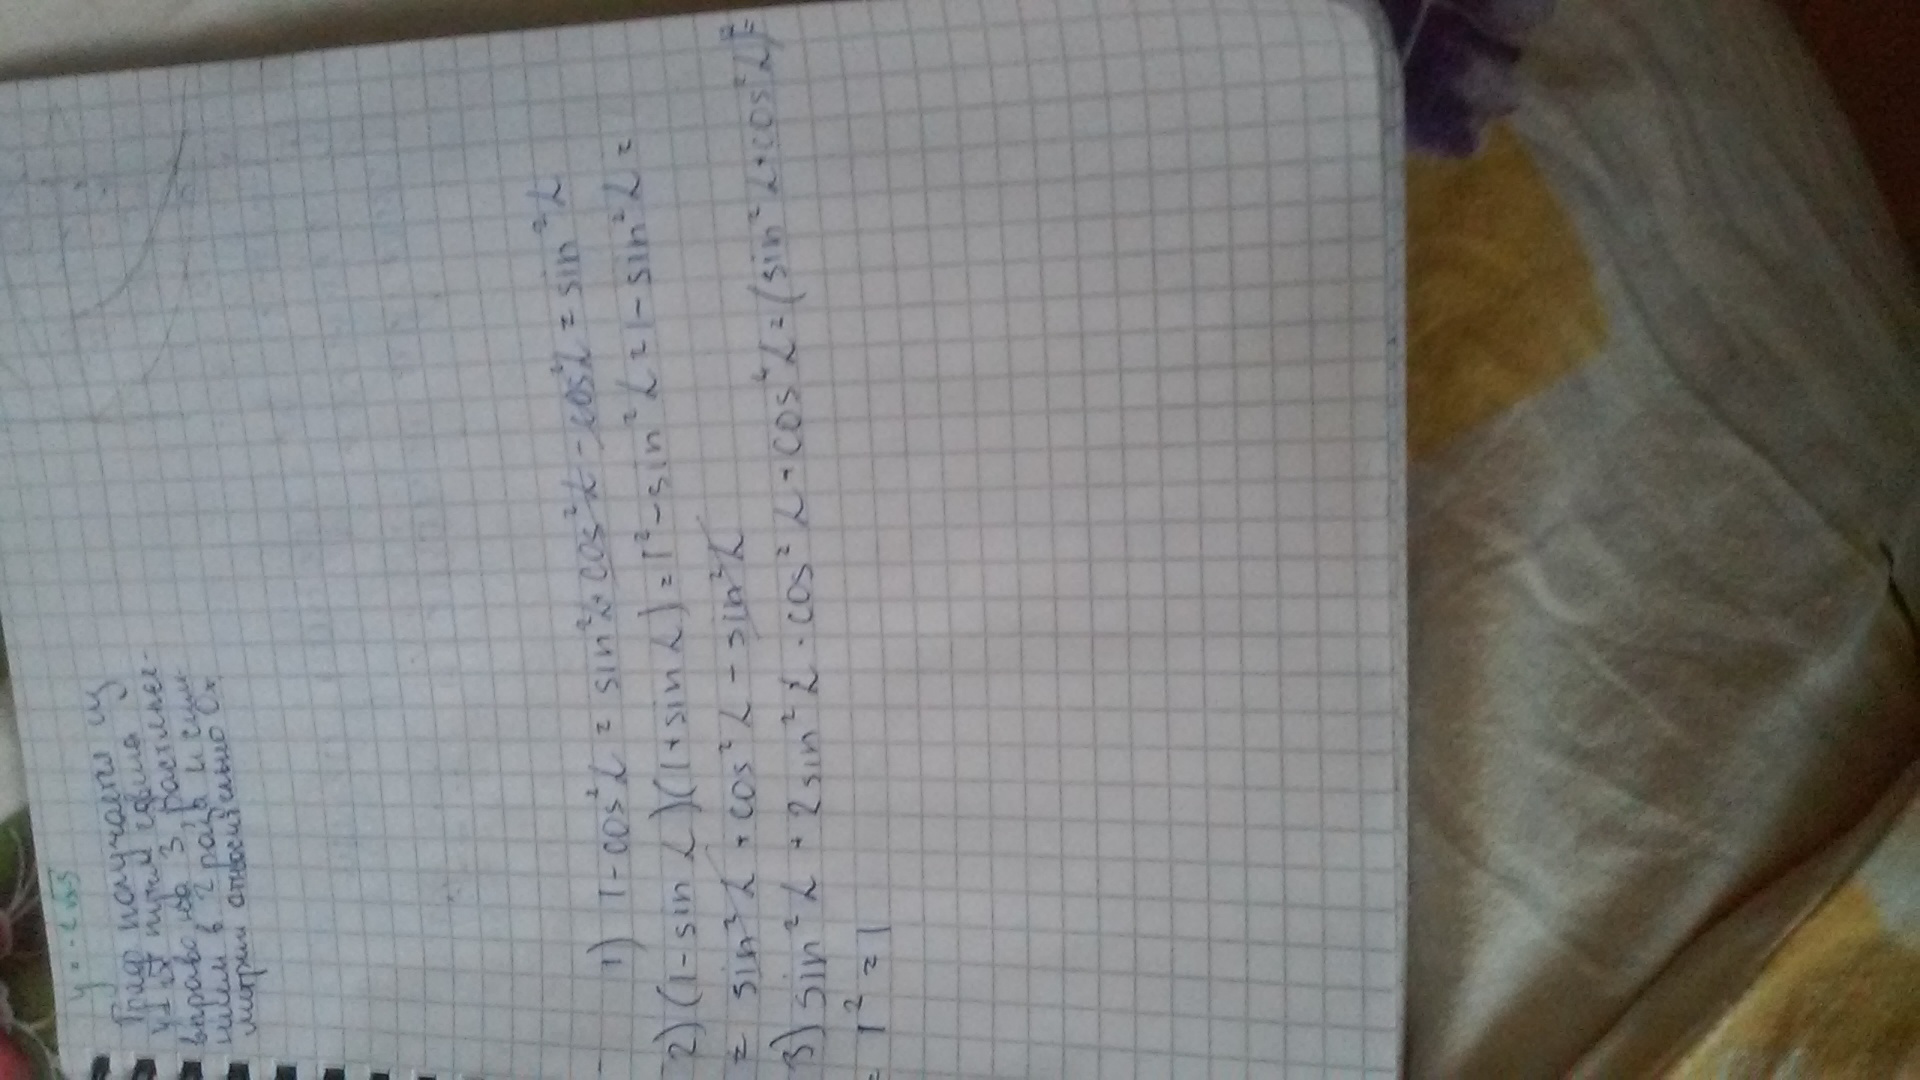 y = -2√x-3
График получается из
y=√x путём сдвига
вправо на 3, растяже-
нием в 2 раза и сим-
метрии относительно Ox
1) 1-cos²α = sin²α+cos²α-cos²α = sin²α
2) (1-sin α)(1+sin α) = 1²-sin²α = 1-sin²α =
= sin²α+cos²α-sin²α
3) sin²α+2sin²α·cos²α+cos⁴α = (sin²α+cos²α)²=
= 1² = 1